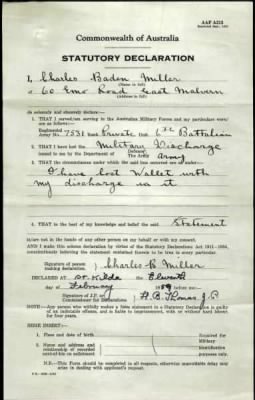 AAF A213
Commonwealth of Australia
STATUTORY DECLARATION
I, Charles Baden Miller
(Name in full)
of 60 Emo Road East Malvern
(Address in full)
do solemnly and sincerely declare:—
1. THAT I served/am serving in the Australian Military Forces and my particulars were/
are as follows:—
Regimental
Army No. 7531 Rank Private Unit 6th Battalion
2. THAT I have lost the Military Discharge
issued to me by the Department of Defence. The Army Army
3. THAT the circumstances under which the said loss occurred are as under:—
I have lost Wallet with
my discharge in it
4. THAT to the best of my knowledge and belief the said Statement
is/are not in the hands of any other person on my behalf or with my consent.
AND I make this solemn declaration by virtue of the Statutory Declarations Act 1911-1944,
conscientiously believing the statement contained herein to be true in every particular.
Signature of person
making declaration. Charles B Miller
DECLARED AT St Kilda the Eleventh
day of February 1959
Signature of J.P. or
Commissioner for Declarations A.B. Thomas J.P.
NOTE.—Any person who wilfully makes a false statement in a Statutory Declaration is guilty
of an indictable offence, and is liable to imprisonment, with or without hard labour
for four years.
HERE INSERT:—
1. Place and date of birth
2. Name and address and
relationship of recorded
next-of-kin on enlistment
Required for
Military
Identification
purposes only.
N.B.—This Form should be completed in all respects, otherwise unavoidable delay may
arise in dealing with applicant's request.